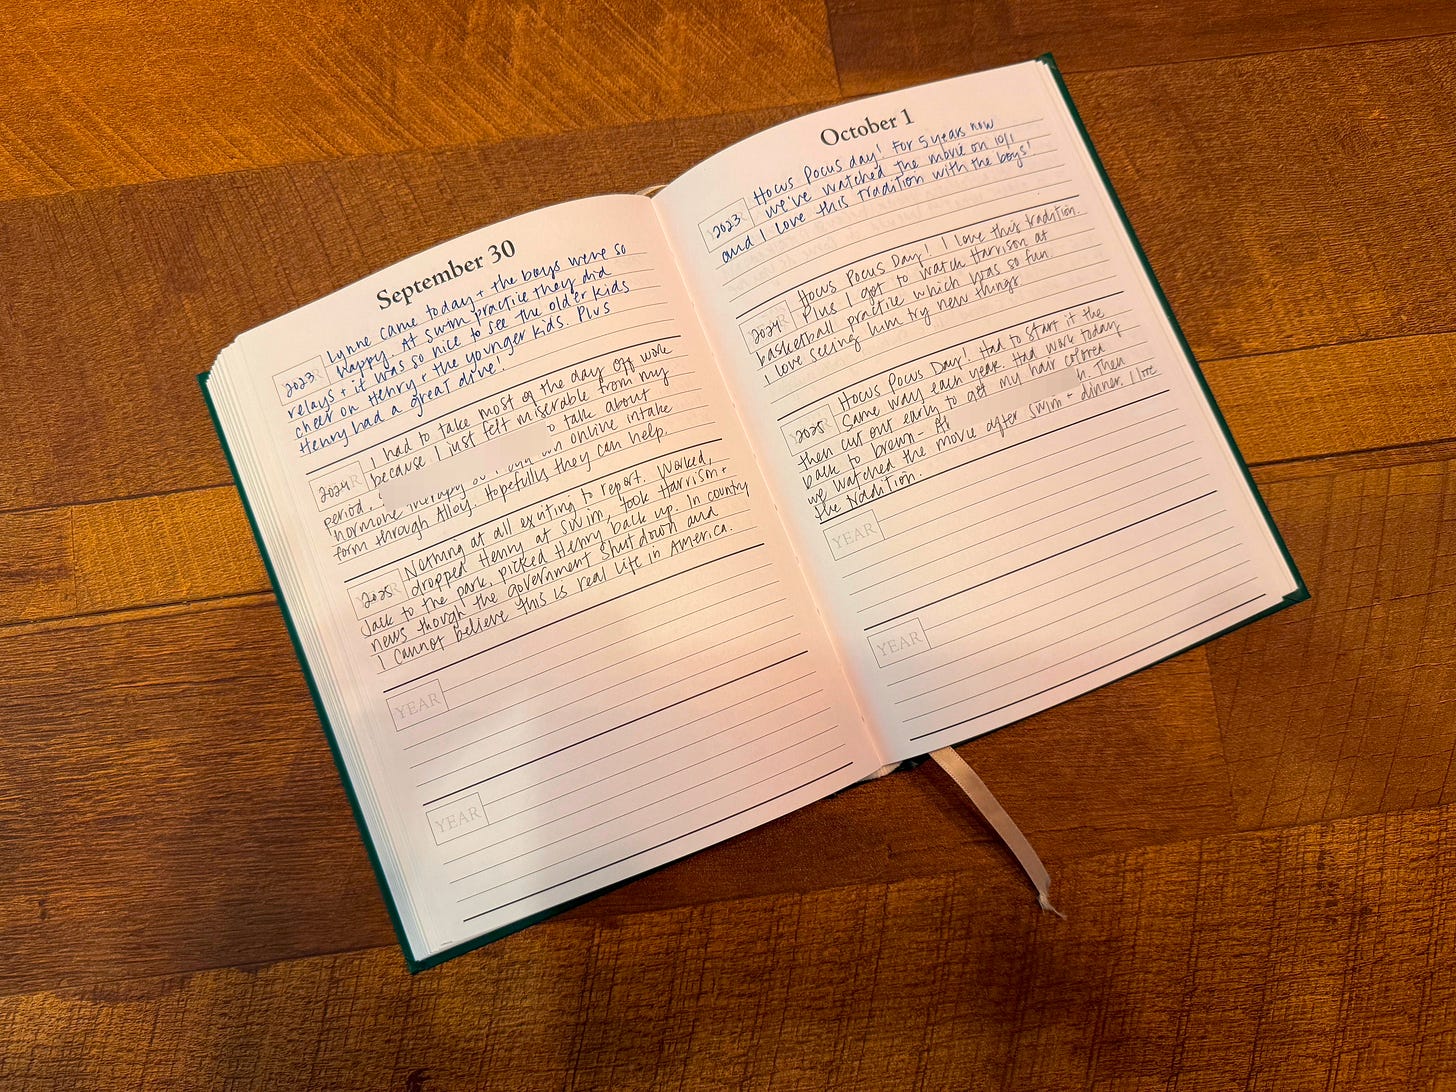 September 30
2023 Lynne came today + the boys were so
happy. At swim practice they did
relays + it was so nice to see the older kids
cheer on Henry + the younger kids. Plus
Henry had a great dive!
2024 I had to take most of the day off work
because I just felt miserable from my
period. talk about
hormone therapy an online intake
form through Alloy. Hopefully they can help.
2025 Nothing at all exciting to report. Worked,
dropped Henry at swim, took Harrison +
Jack to the park, picked Henry back up. In country
news though the government shut down and
I cannot believe this is real life in America.
YEAR
YEAR
October 1
2023 Hocus Pocus day! For 5 years now
we've watched the movie on 10/1
and I love this tradition with the boys!
2024 Hocus Pocus Day! I love this tradition.
Plus I got to watch Harrison at
basketball practice which was so fun.
I love seeing him try new things
2025 Hocus Pocus Day! Had to start it the
same way each year. Had work today
then cut out early to get my hair colored
back to brown - Then
we watched the movie after swim + dinner. I love
the tradition.
YEAR
YEAR